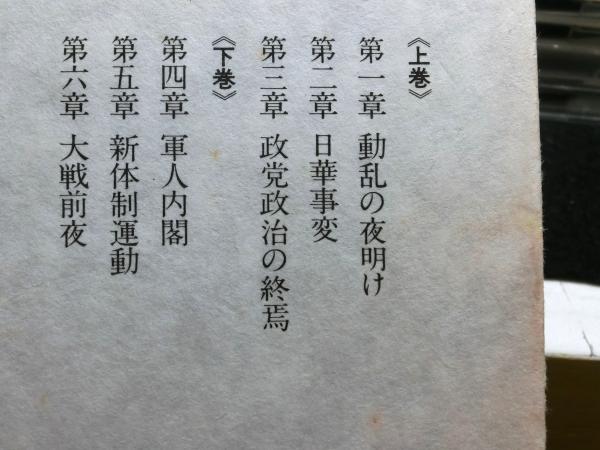 《上巻》
第一章 動乱の夜明け
第二章 日華事変
第三章 政党政治の終焉
《下巻》
第四章 軍人内閣
第五章 新体制運動
第六章 大戦前夜